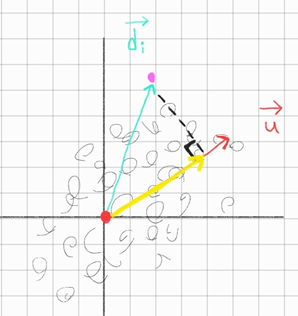 d⃗ᵢ
u⃗